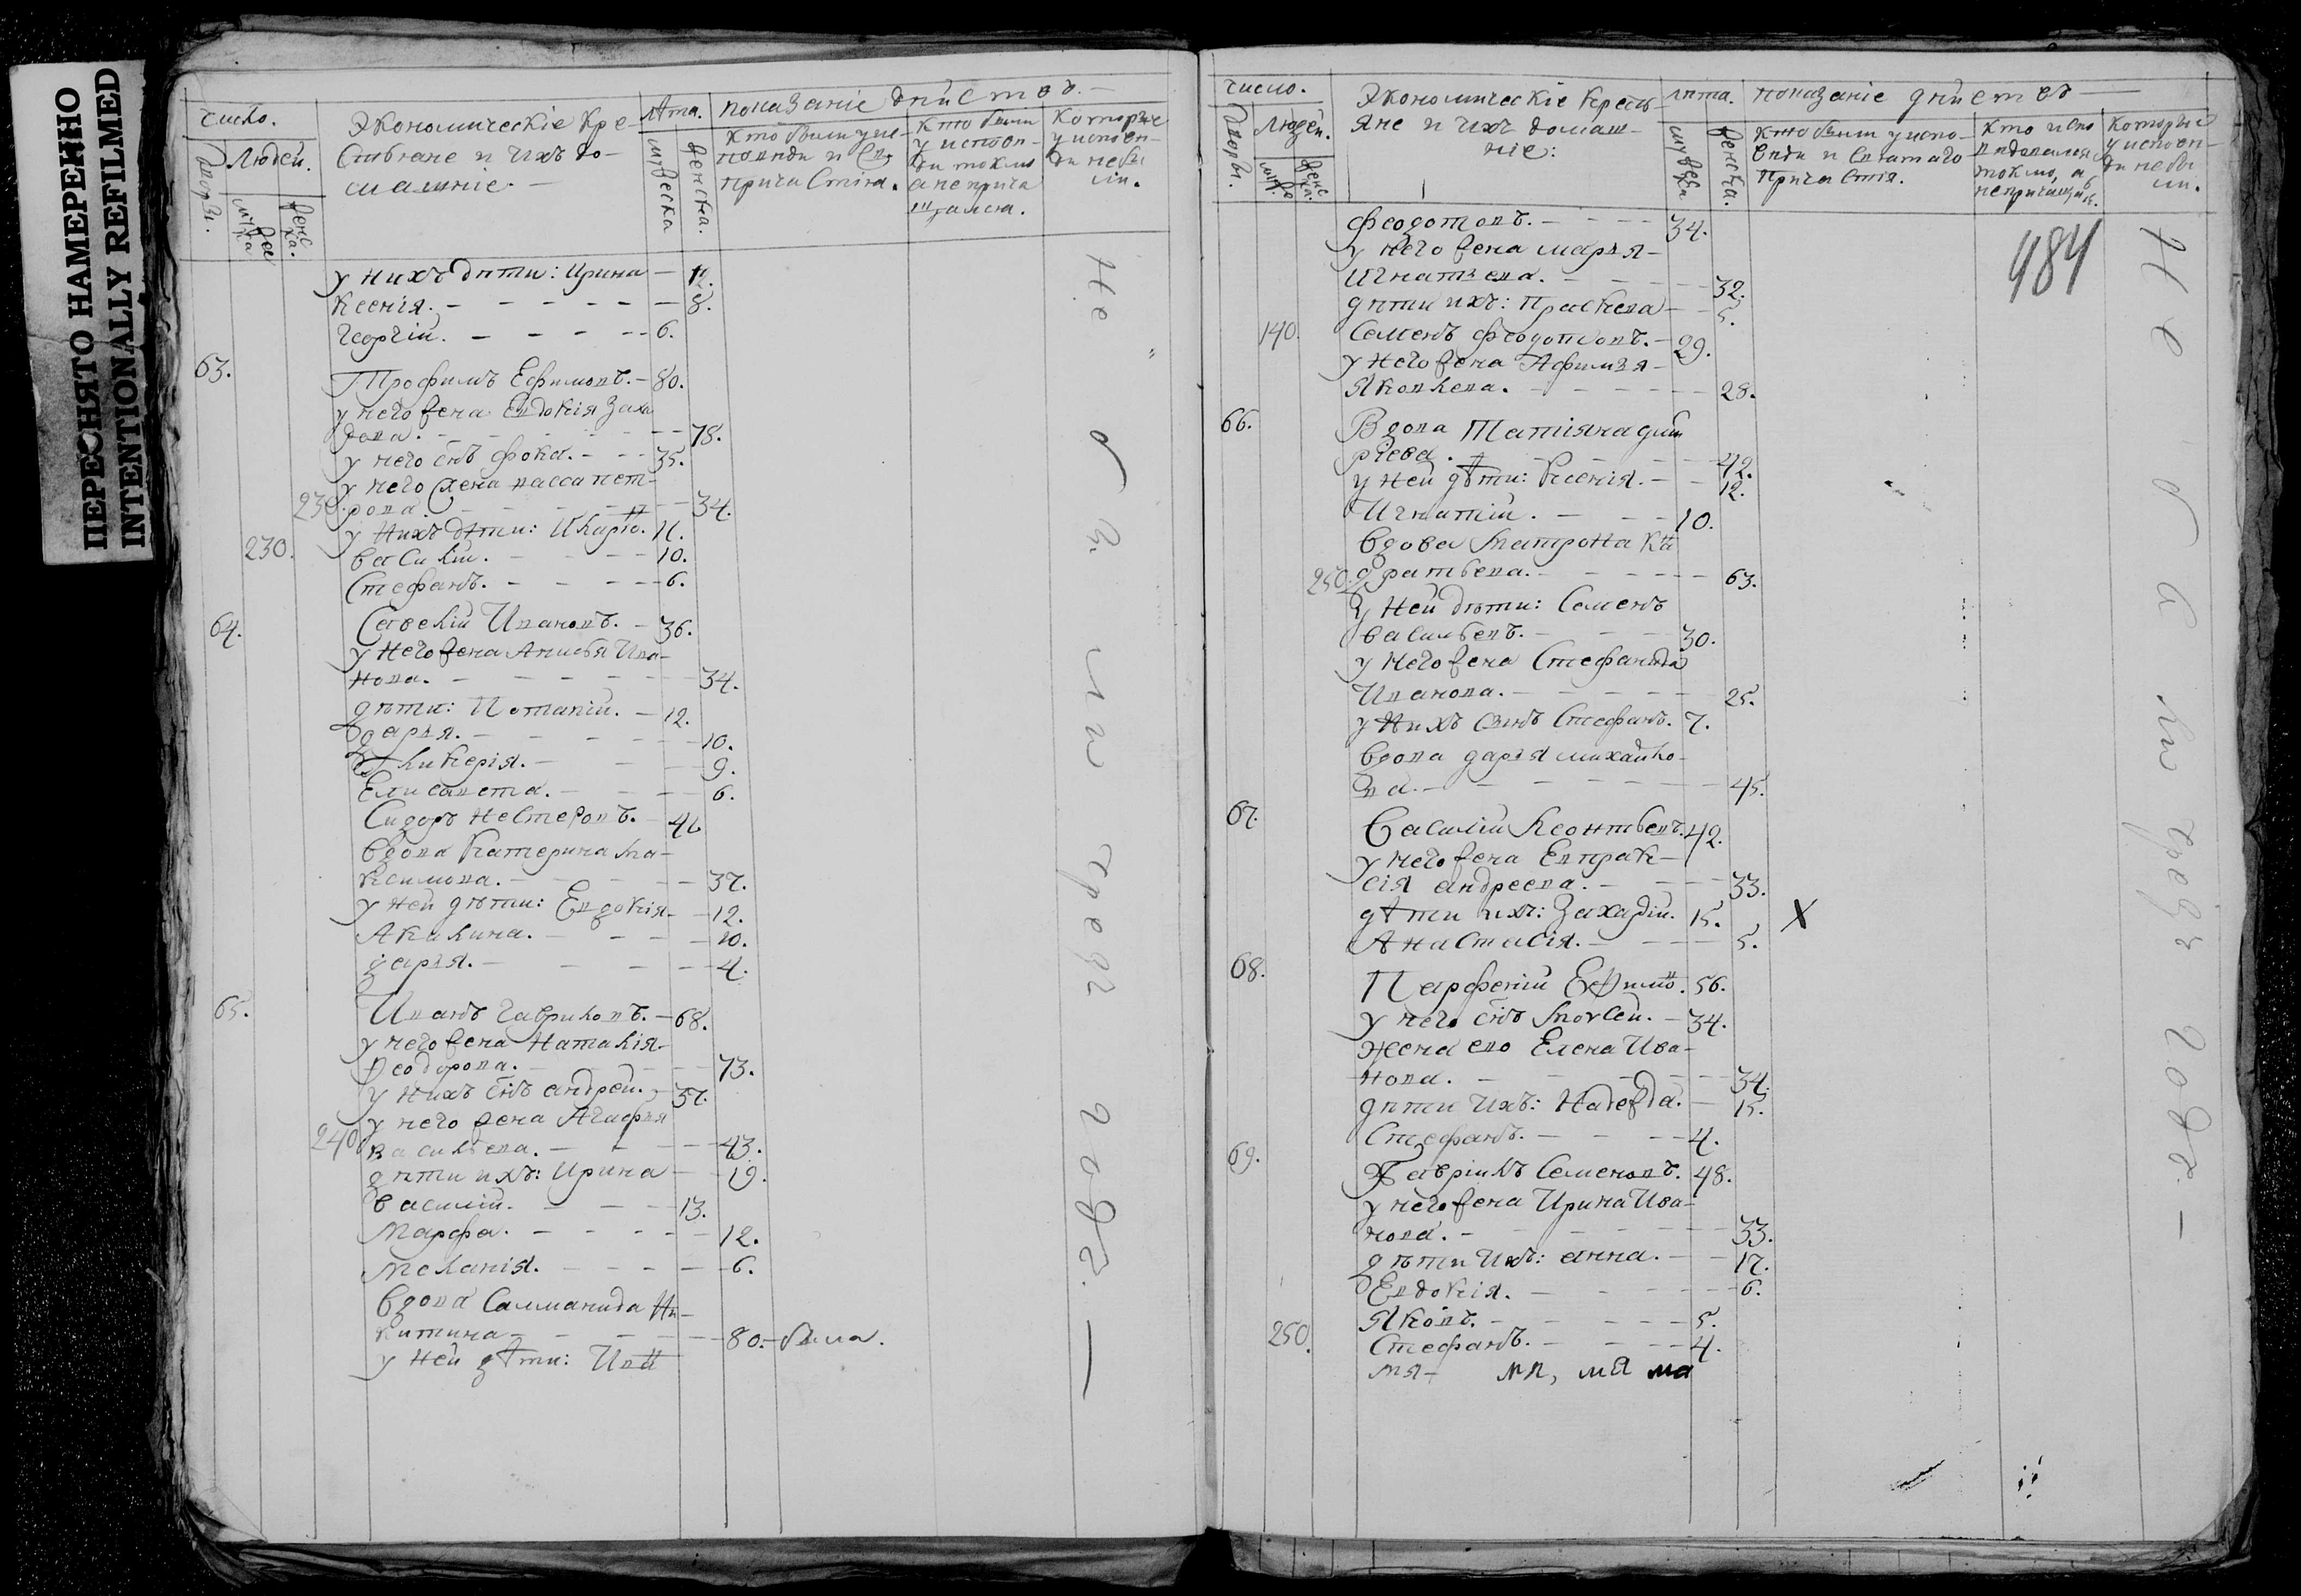 ПЕРЕСНЯТО НАМЕРЕННО
INTENTIONALLY REFILMED
число.
Экономическіе кре-
стьяне и ихъ до-
машніе.
Лѣта.
показаніе дѣйствъ.
Дворы.
Людей.
мужеска
женска.
Кто были у испо-
Кто были
у испов-
ди токмо
а неприча
щался.
Которые
у испов-
ди небы
ли.
у нихъ дѣти: Ирина 12.
Ксенія. 8.
Георгій. 6.
63.
Трофимъ Ефимовъ. 80.
у него жена Евдокія Заха
рова. 78.
у него снъ Фока. 35.
у него жена Васса пет-
рова. 34.
у нихъ дѣти: Иларіо. 11.
230. Василій. 10.
Стефанъ. 6.
64.
Савелій Ивановъ. 36.
у него жена Анисья Ива-
нова. 34.
дѣти: Потапій. 12.
дарья. 10.
Гликерія. 9.
Елисавета. 6.
Сидоръ Нестеровъ.
вдова Катерина Ма-
ксимова. 37.
у ней дѣти: Евдокія 12.
Акилина. 10.
дарья. 4.
65.
Иванъ Гавриловъ. 68.
у него жена Наталія
Феодорова. 73.
у нихъ снъ андрей. 37.
у него жена Агафья
240 васильева. 43.
дѣти ихъ: Ирина 19.
василій. 13.
Марфа. 12.
Меланія. 6.
вдова Саломанида Ни-
китина 80. была.
у ней дѣти: Ива
Не были чрезъ годъ.
число.
Экономическіе кресть
яне и ихъ домаш-
ніе:
лѣта.
показаніе дѣйствъ
Дворы.
Людей.
мужеска
женска.
Кто были у испо-
вѣди и святаго
причастія.
Кто испо
вѣдовался
токмо, а
непричащал.
Которые
у испов-
ди небы
ли.
484
Феодотовъ. 34.
у него жена марья
Игнатьева. 32.
дѣти ихъ: Праскева 5.
140. Семенъ Феодотовъ. 29.
у него жена Афимья
Яковлева. 28.
66.
Вдова Татіяна дми
ріева. 42.
у ней дѣти: Ксенія. 12.
Игнатій. 10.
вдова Матрона Ко
дратьева. 63.
250.
у ней дѣти: Семенъ
васильевъ. 30.
у него жена Стефанида
Иванова. 25.
у нихъ сынъ Стефанъ. 7.
вдова дарья михайло-
ва. 45.
67.
Василій Леонтьевъ. 42.
у него жена Евпрак-
сія андреева. 33.
дѣти ихъ: Захарій. 15. X
Анастасія. 5.
68.
Парфеній Ефимо. 56.
у него снъ Моѵсей. 34.
жена ево Елена Ива-
нова. 34.
дѣти ихъ: Надежда. 15.
Стефанъ. 4.
69.
Гавріилъ Семеновъ. 48.
у него жена Ирина Ива-
нова. 33.
дѣти ихъ: анна. 12.
Евдокія. 6.
Яковъ. 5.
250. Стефанъ. 4.
Не были чрезъ годъ.